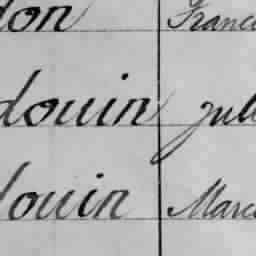 don Franc
douin Jul
douin Marc